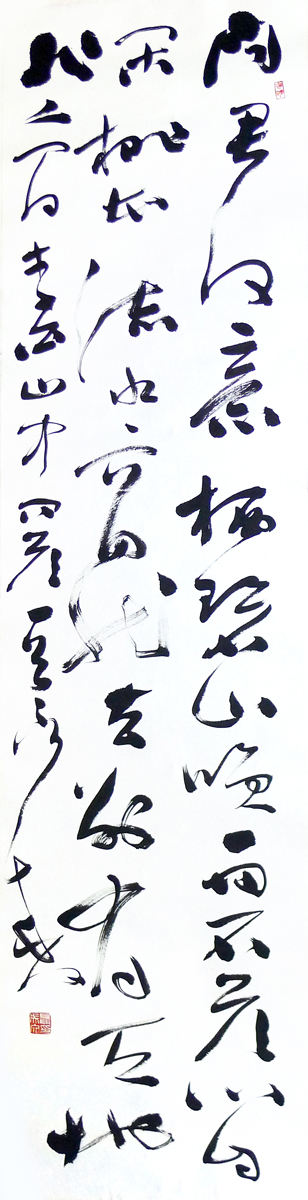 问君何意栖碧山笑而不答心自
闲桃花流水窅然去别有天地
非人间李白山中问答